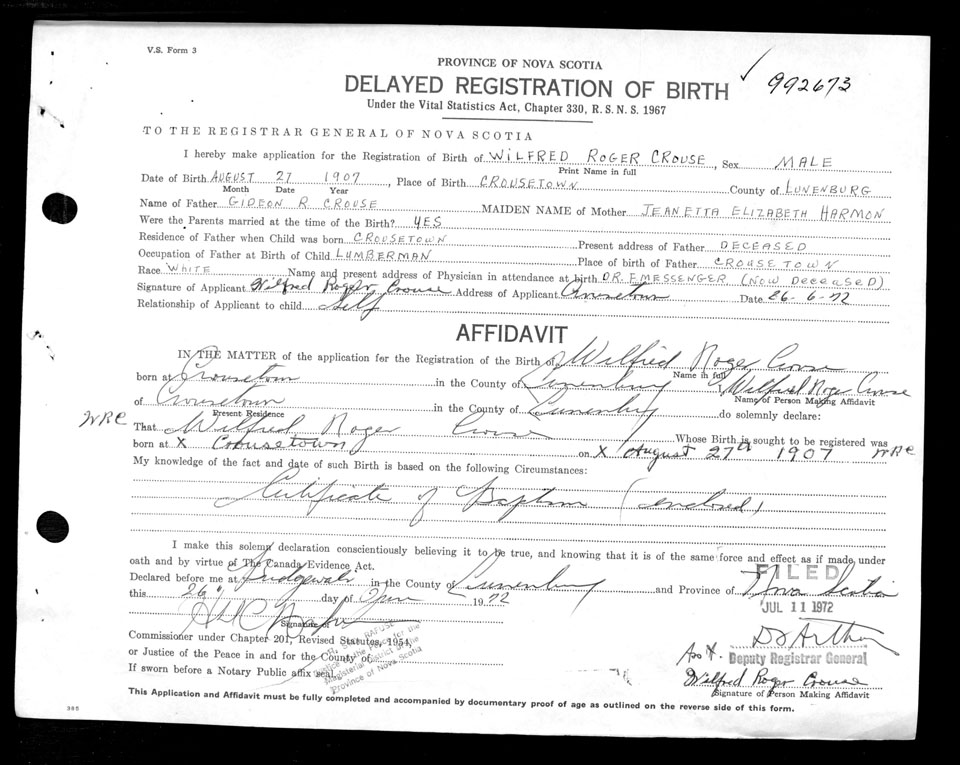 V.S. Form 3
PROVINCE OF NOVA SCOTIA
DELAYED REGISTRATION OF BIRTH
992673
Under the Vital Statistics Act, Chapter 330, R.S.N.S. 1967
TO THE REGISTRAR GENERAL OF NOVA SCOTIA
I hereby make application for the Registration of Birth of WILFRED ROGER CROUSE, Sex MALE
Print Name in full
Date of Birth AUGUST 27 1907, Place of Birth CROUSETOWN County of LUNENBURG
Month Date Year
Name of Father GIDEON R CROUSE MAIDEN NAME of Mother JEANETTA ELIZABETH HARMON
Were the Parents married at the time of the Birth? YES
Residence of Father when Child was born CROUSETOWN Present address of Father DECEASED
Occupation of Father at Birth of Child LUMBERMAN Place of birth of Father CROUSETOWN
Race WHITE Name and present address of Physician in attendance at birth DR. F MESSENGER (NOW DECEASED)
Signature of Applicant Wilfred Roger Crouse Address of Applicant Crousetown Date 26-6-72
Relationship of Applicant to child Self
AFFIDAVIT
IN THE MATTER of the application for the Registration of the Birth of Wilfred Roger Crouse
Name in full
born at Crousetown in the County of Lunenburg, Wilfred Roger Crouse
Name of Person Making Affidavit
of Crousetown in the County of Lunenburg do solemnly declare:
Present Residence
WRC That Wilfred Roger Crouse Whose Birth is sought to be registered was
born at X Crousetown on X August 27th 1907 WRC
My knowledge of the fact and date of such Birth is based on the following Circumstances:
Certificate of Baptism (enclosed)
I make this solemn declaration conscientiously believing it to be true, and knowing that it is of the same force and effect as if made under
oath and by virtue of The Canada Evidence Act.
FILED
Declared before me at Bridgewater in the County of Lunenburg and Province of Nova Scotia
this 26 day of June 1972
JUL 11 1972
Signature of
Commissioner under Chapter 201, Revised Statutes, 1954,
or Justice of the Peace in and for the County of
If sworn before a Notary Public affix seal.
RAFUSE
of the Peace for the
Magisterial District of the
Province of Nova Scotia
Deputy Registrar General
Wilfred Roger Crouse
Signature of Person Making Affidavit
This Application and Affidavit must be fully completed and accompanied by documentary proof of age as outlined on the reverse side of this form.